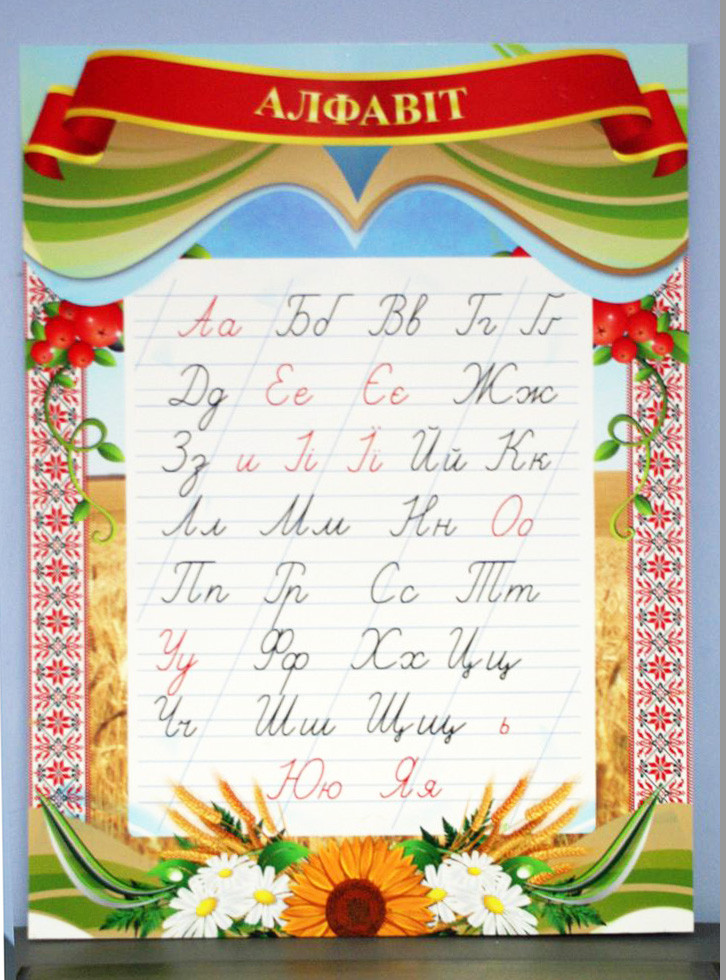 АЛФАВІТ
Аа Бб Вв Гг Ґґ
Дд Ее Єє Жж
Зз и Іі Її Йй Кк
Лл Мм Нн Оо
Пп Рр Сс Тт
Уу Фф Хх Цц
Чч Шш Щщ ь
Юю Яя